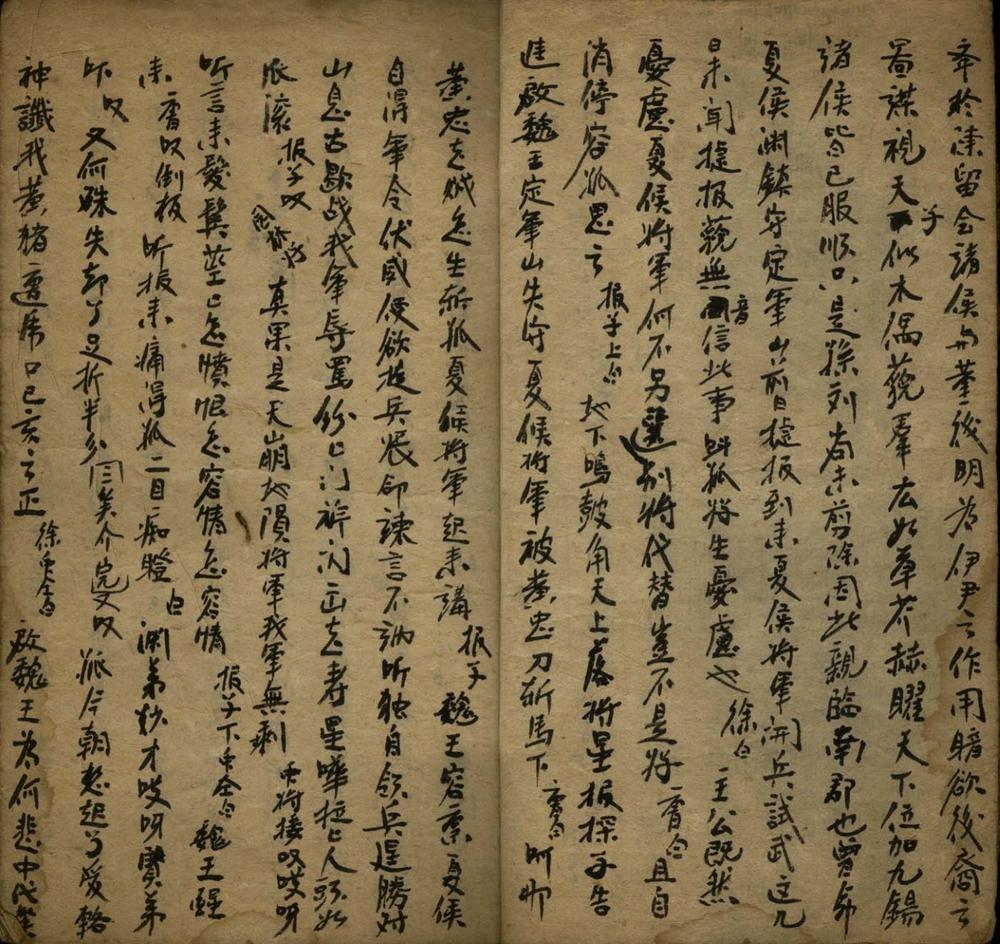 奉於漆留会諸侯与董後明为伊尹之作用暗欲後裔云
啚謀視天子似木偶藐羣広如草芥赫耀天下位加九錫
諸侯皆已服順只是孫刘尚未剪除因此親臨南郡也曾命
夏侯渊鎮守定軍山前日捷报到来夏侯将軍開兵試武这几
日未闻捷报藐無音信此事叫孤好生憂慮也 徐白 主公既然
憂慮夏侯将軍何不另選别将代替豈不是好 曹白 且自
消停容孤思之 报子上白 地下鳴鼓角天上落将星报探子告
進啟魏王定軍山失守夏候将軍被黄忠刀斩馬下 曹白
黄忠老贼怎生斩孤夏候将軍起来講 报子 魏王容禀夏侯
自得軍令伏威便欲提兵張郃諫言不納听独自領兵逞勝对
山息古歇战我軍辱罵份匕门旂闪出老寿星嘩拉匕人头如
水滚 报子叹 真果是天崩地隕将軍我軍無剩 接叹哎呀
听言来髮鬓蓬匕怎憤恨怎容情怎容情 报子下 白 魏王醒
来 曹叹倒板 听报来痛得孤二目痴瞪 白 渊弟妙才哎呀賢弟
吓 叹 又何殊失却了足折半分 叹 孤今朝想起了爰輅
神讖我黄猪遭虎口已亥之正 徐 白 啟魏王为何悲中代笑